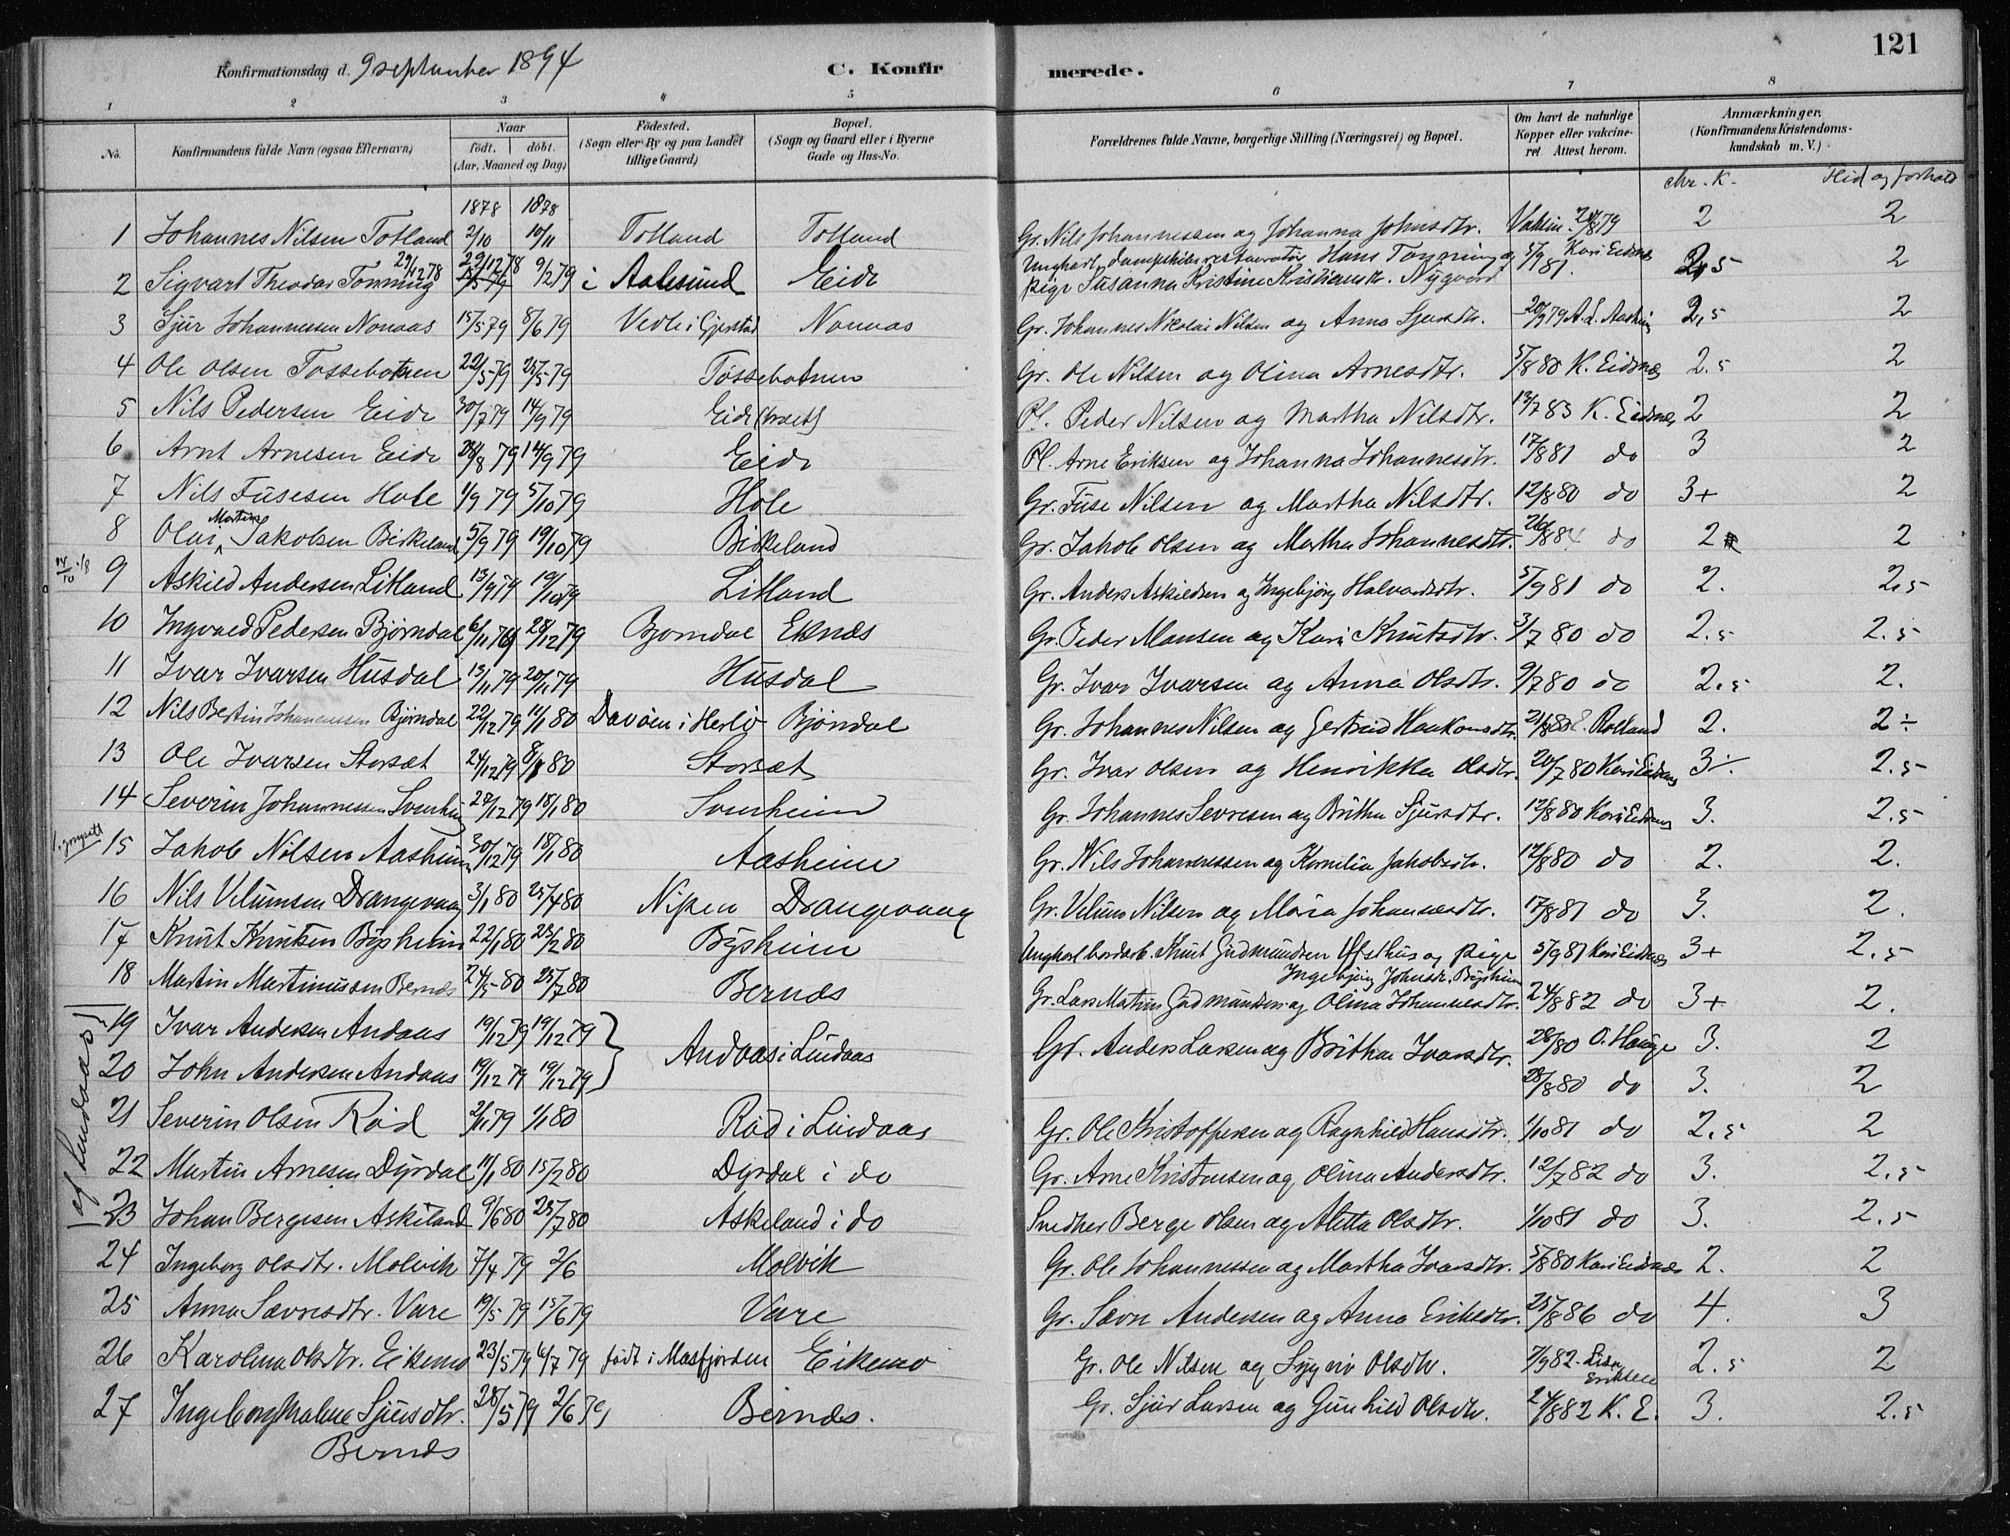 121
Konfirmationsdag d. 9 september 1894 C. Konfirmerede.
1 2 3 4 5 6 7 8
No. Konfirmandens fulde Navn (ogsaa Efternavn) Naar födt. döbt. (Aar, Maaned og Dag) Födested. (Sogn eller By og paa Landet tillige Gaard) Bopæl. (Sogn og Gaard eller i Byerne Gade og Hus-No. Forældrenes fulde Navne, borgerlige Stilling (Næringsvei) og Bopæl. Om havt de naturlige Kopper eller vakcineret Attest herom. Anmærkninger. (Konfirmandens Kristendomskundskab m. V.)
chr. K. Flid og forhold
1878 1878
1 Johannes Nilsen Totland 2/10 10/11 Totland Totland Gr. Nils Johannessen og Johanna Johnsdtr. Vakcin. 79 2 2
2 Sigvart Theodor Tonning 29/12 78 9/2 79 i Aalesund Eide Ungkarl dampskibsrestauratør Hans Tonning og pige Susanna Kristine Kristiansdtr. Nygaard 5/9 81. Kari Eidsnes 2,5 2
3 Sjur Johannessen Nonaas 15/5 79 8/6 79 Vedle i Gjerstad Nonaas Gr. Johannes Nikolai Nilsen og Anna Sjursdtr. 20/9 79 2,5 2
4 Ole Olsen Tossebotnen 22/5 79 25/5 79 Tossebotnen Gr. Ole Nilsen og Olina Arnesdtr. 5/8 80 K. Eidsnes 2.5 2
5 Nils Pedersen Eide 30/7 79 14/9 79 Eide Pl. Peder Nilsen og Martha Nilsdtr. 13/7 83 K. Eidsnes 2 2
6 Arnt Arnesen Eide 28/8 79 14/9 79 Eide Pl. Arne Eriksen og Johanna Johannesdtr. 17/8 81 do 3 2
7 Nils Fusesen Hole 1/9 79 5/10 79 Hole Gr. Fuse Nilsen og Martha Nilsdtr. 12/8 80 do 3+ 2
8 Olai Martin Jakobsen Birkeland 5/9 79 19/10 79 Birkeland Gr. Jakob Olsen og Martha Johannesdtr. 26/8 84 do 2 2
9 Askild Andersen Litland 13/9 79 19/10 79 Litland Gr. Anders Askildsen og Ingebjørg Halvardsdtr. 5/9 81 do 2. 2,5
10 Ingvald Pedersen Bjørndal 6/11 79 28/12 79 Bjørndal Eknæs Gr. Peder Monsen og Kari Knutsdtr. 3/7 80 do 2.5 2.5
11 Ivar Ivarsen Husdal 13/11 79 20/11 79 Husdal Gr. Ivar Ivarsen og Anna Olsdtr. 9/7 80 do 2.5 2.
12 Nils Bertin Johannessen Bjørndal 22/12 79 11/1 80 Davøen i Herlø Bjørndal Gr. Johannes Nilsen og Gertrud Haakonsdtr. 21/8 80 E. Rolland 2. 2÷
13 Ole Ivarsen Storsæt 24/12 79 8/1 80 Storsæt Gr. Ivar Olsen og Henrikka Olsdtr. 20/7 80 Kari Eidsnes 3÷ 2.5
14 Severin Johannessen Svenheim 28/12 79 18/1 80 Svenheim Gr. Johannes Sevresen og Britha Sjursdtr. 12/8 80 Kari Eidsnes 3. 2.5
15 Jakob Nilsen Aasheim 30/12 79 18/1 80 Aasheim Gr. Nils Johannessen og Kornelia Jakobsdtr. 12/8 80 do 2. 2.
16 Nils Velumsen Drangevaag 3/1 80 25/4 80 Nipen Drangevaag Gr. Velum Nilsen og Maria Johannesdtr. 17/8 81 do 3. 2.
17 Knut Knutsen Bysheim 22/1 80 23/2 80 Bysheim Ungkarl bordarb. Knut Gudmundsen Ofsthus og pige Ingebjørg Johnsdtr. Bysheim 5/9 81 Kari Eidsnes 3+ 2.5
18 Martin Martinussen Bernæs 24/5 80 25/7 80 Bernæs Gr. Lars Matius Gudmundsen og Olina Johannesdtr. 24/8 82 do 3+ 2.
af Lindaas
19 Ivar Andersen Andaas 19/12 79 19/12 79 Andaas i Lindaas Gr. Anders Larsen og Britha Ivarsdtr. 28/8 80 O. Hauge 3. 2
20 John Andersen Andaas 19/12 79 19/12 79 28/8 80 do 3. 2
21 Severin Olsen Rød 2/11 79 1/1 80 Rød i Lindaas Gr. Ole Kristoffersen og Ragnhild Hansdtr. 1/10 81 do 2.5 2
22 Martin Arnesen Dyrdal 11/1 80 15/2 80 Dyrdal i do Gr. Arne Kristensen og Olina Andersdtr. 12/7 82 do 3. 2.5
23 Johan Bergesen Askeland 9/6 80 25/7 80 Askeland i do Snedker Berge Olsen og Aletta Olsdtr. 1/10 81 do 3. 2.5
24 Ingeborg Olsdtr. Molvik 7/4 79 2/6 Molvik Gr. Ole Johannessen og Martha Ivarsdtr. 5/8 80 Kari Eidsnes 2. 2
25 Anna Sævresdtr. Vare 19/5 79 15/6 79 Vare Gr. Sævre Andersen og Anna Eriksdtr. 25/8 86 do 4. 3
26 Karolina Olsdtr. Eikemo 23/5 79 6/7 79 født i Masfjorden Eikemo Gr. Ole Nilsen og Sygniv Olsdtr. 7/9 82 Lisa Eriksen 2.5 2
27 Ingeborg Malene Sjursdtr. Bernæs 28/5 79 2/6 79 Bernæs. Gr. Sjur Larsen og Gunhild Olsdtr. 24/8 82 K. E. 3. 2.5